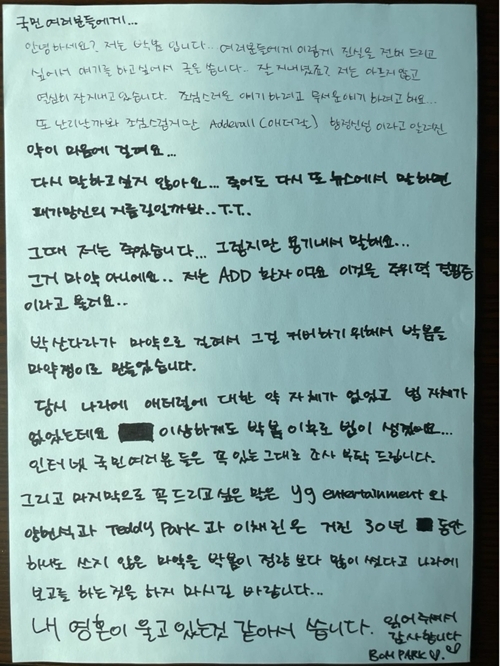 국민 여러분들에게...
안녕하세요? 저는 박봄 입니다.. 여러분들에게 이렇게 진실을 전해 드리고
싶어서 얘기를 하고싶어서 글을 씁니다. 잘 지내셨죠? 저는 아프지 않고
열심히 잘지내고 있습니다. 조심스러운 얘기 하려고 무서운얘기 하려고 해요...
또 난리날까봐 조심스럽지만 Adderall (애더랄) 향정신성 이라고 알려진
약이 마음에 걸려요...
다시 말하고싶지 않아요... 죽어도 다시 또 뉴스에서 말하면
패가망신의 지름길일까봐.. T.T.
그때 저는 죽었습니다... 그렇지만 용기내서 말해요...
그거 마약 아니에요.. 저는 ADD 환자 이고요 이것을 주위력 결핍증
이라고 불러요..
박산다라가 마약으로 걸려서 그걸 커버하기 위해서 박봄을
마약쟁이로 만들었습니다.
당시 나라에 애더럴에 대한 약 자체가 없었고 법 자체가
없었는데요 이상하게도 박봄 이후로 법이 생겼어요...
인터넷 국민여러분 들은 꼭 있는 그대로 조사 부탁 드립니다.
그리고 마지막으로 꼭 드리고 싶은 말은 yg entertainment 와
양현석과 Teddy Park 과 이채린은 거진 30년 동안
하나도 쓰지 않은 마약을 박봄이 정량 보다 많이 썼다고 나라에
보고를 하는 것을 하지 마시길 바랍니다...
내 영혼이 울고 있는것 같아서 씁니다. 읽어주셔서
감사합니다
BOM PARK ♡.♡